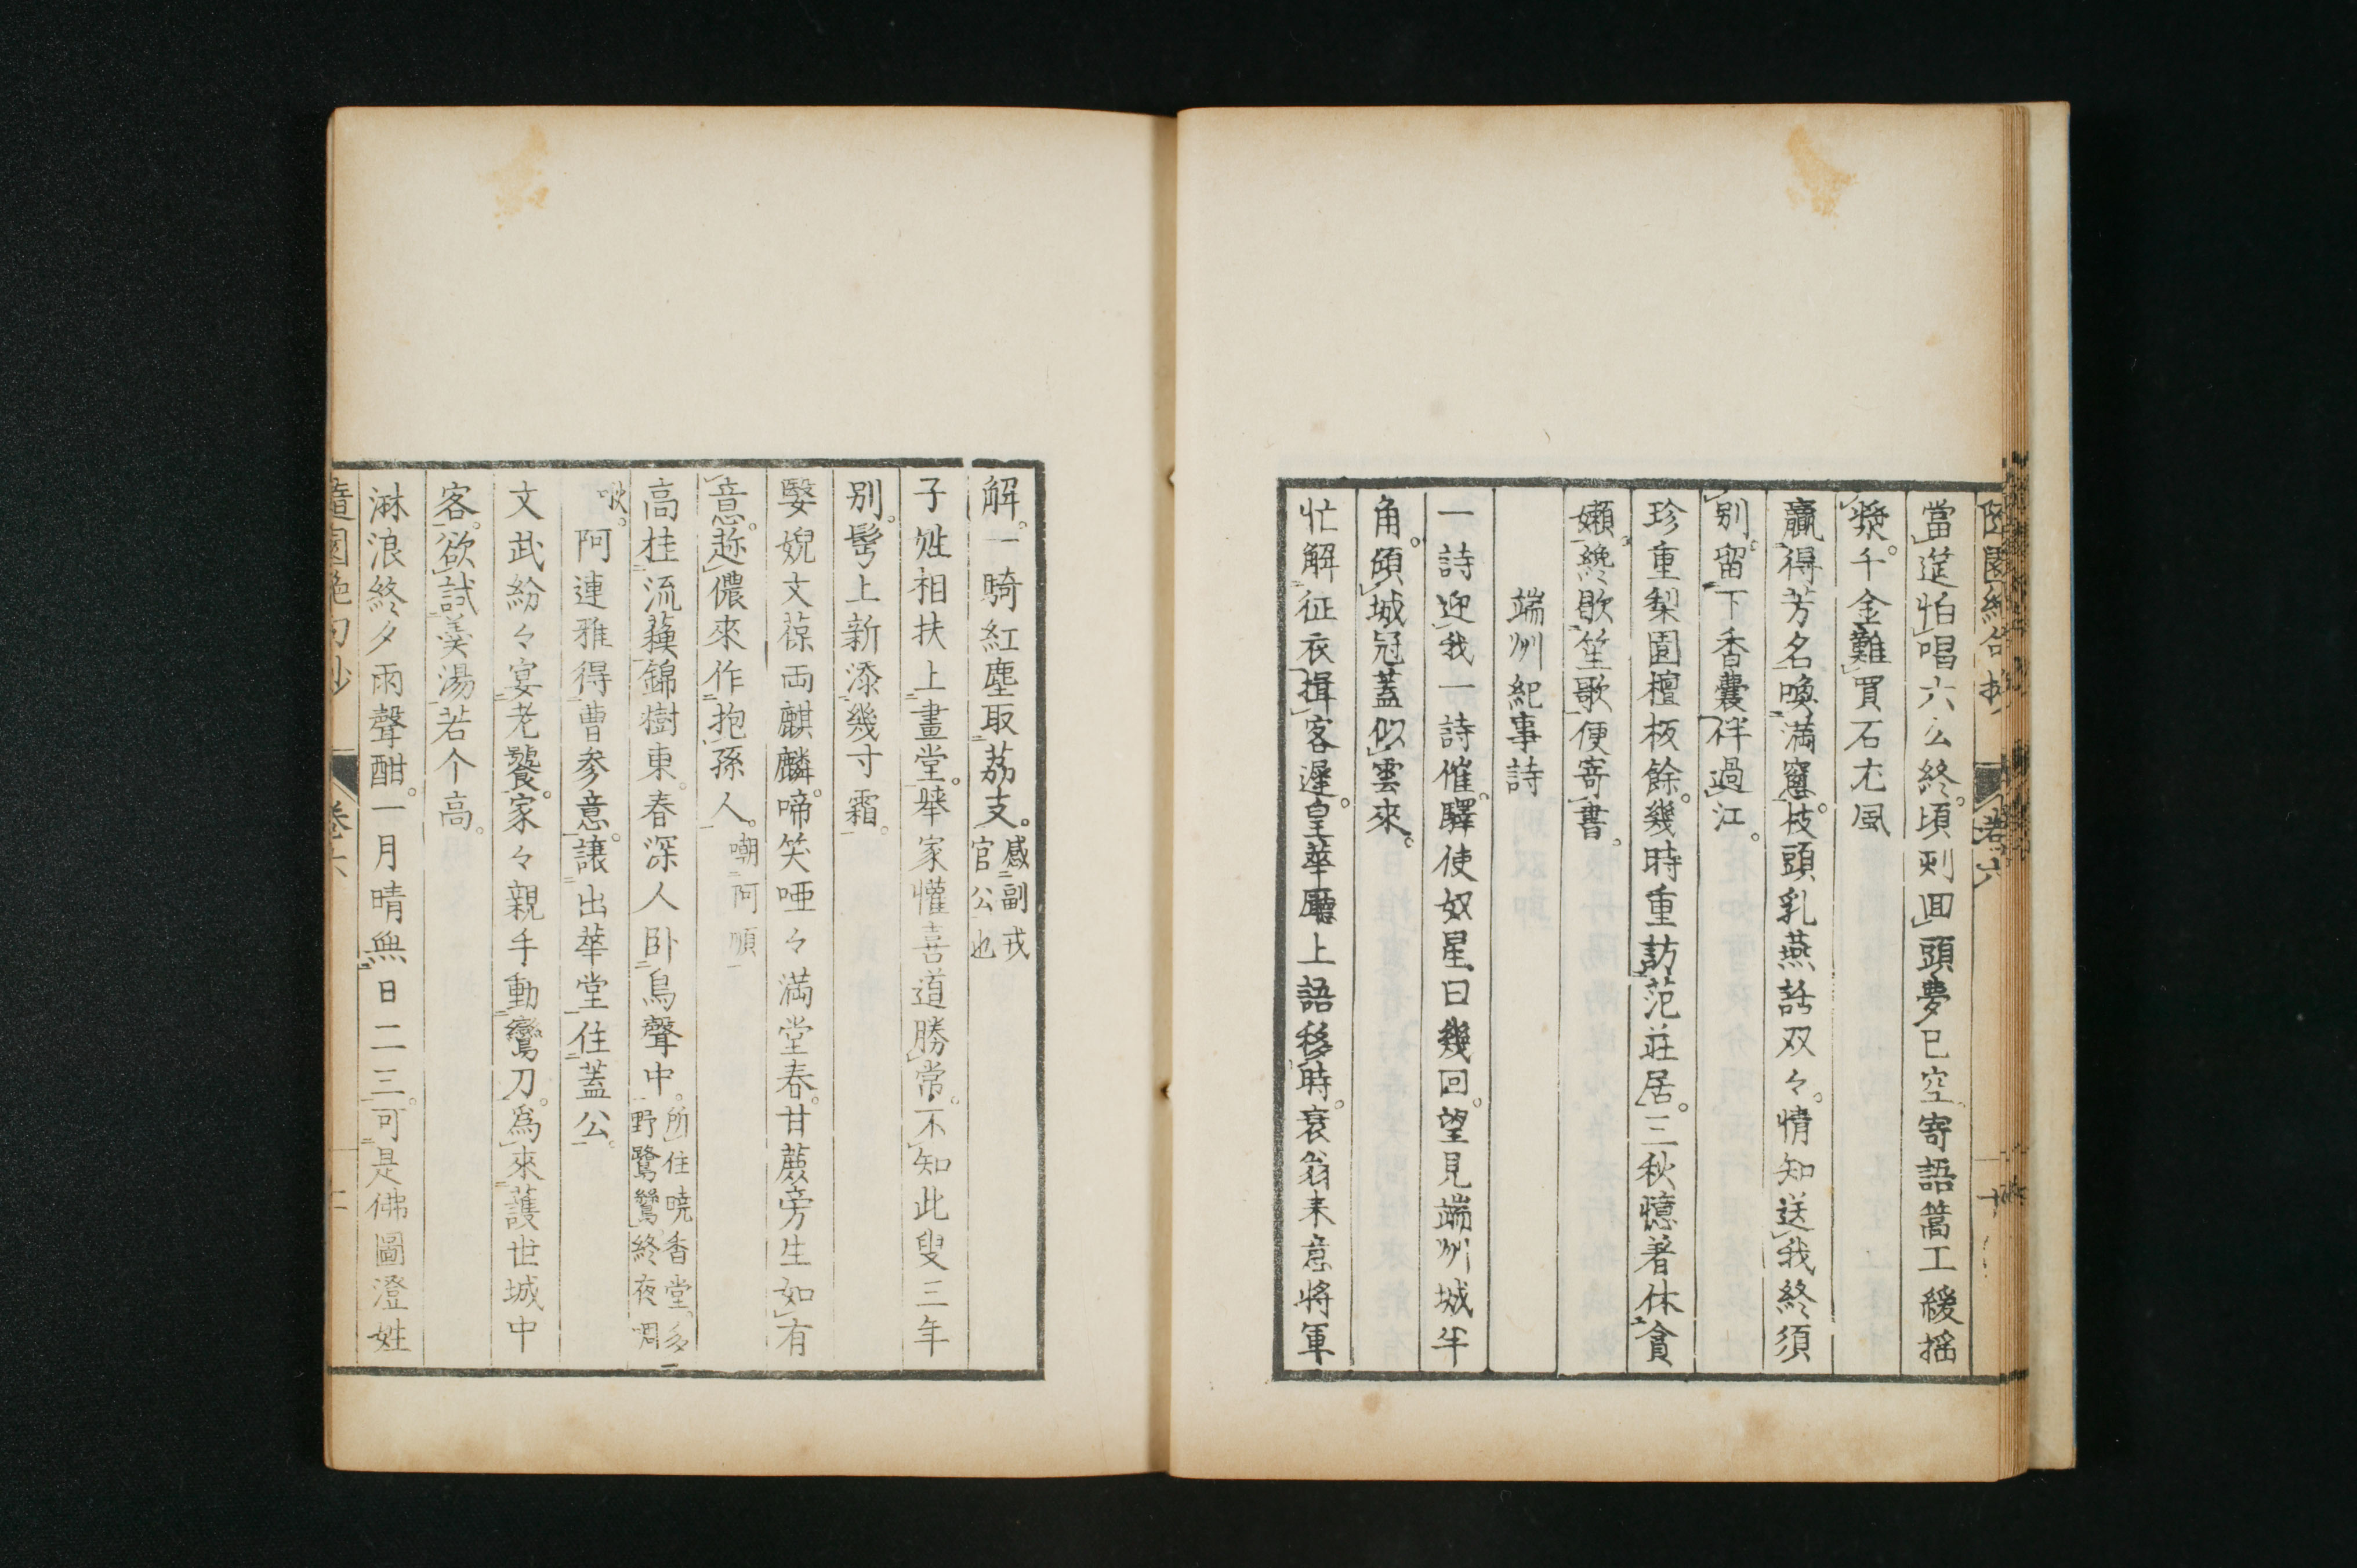 隨園絶句抄 卷六 十
當筵怕唱六么終。頃刻囬頭夢已空寄語篙工緩揺
槳。千金難買石尤風
贏得芳名喚満窻。枝頭乳燕話双々。情知送我終須
別。留下香囊伴過江。
珍重梨園檀板餘。幾時重訪范莊居。三秋憶著休貪
嬾。纔歇笙歌便寄書。
端州紀事詩
一詩迎我一詩催。驛使奴星日幾回。望見端州城半
角。頒城冠蓋似雲來。
忙解征衣揖客遲。皇華廳上語移時。衰翁未意將軍
解。一騎紅塵取茘支。感副戎官公也
子姓相扶上畫堂。擧家懽喜道勝常。不知此叟三年
別。髩上新添幾寸霜。
嫛婗文葆両麒麟。啼笑唖々満堂春。甘蔗旁生如有
意。趂儂來作抱孫人。嘲阿順
高桂流蘓錦樹東。春深人卧鳥聲中。所住曉香堂。多野鷺鷥終夜啁
啾。
阿連雅得曹参意。讓出華堂住蓋公。
文武紛々宴老饕。家々親手動鸞刀。爲來護世城中
客。欲試羹湯若个高。
淋浪終夕雨聲酣。一月晴無日二三。可是佛圖澄姓
隨園絶句抄 卷六